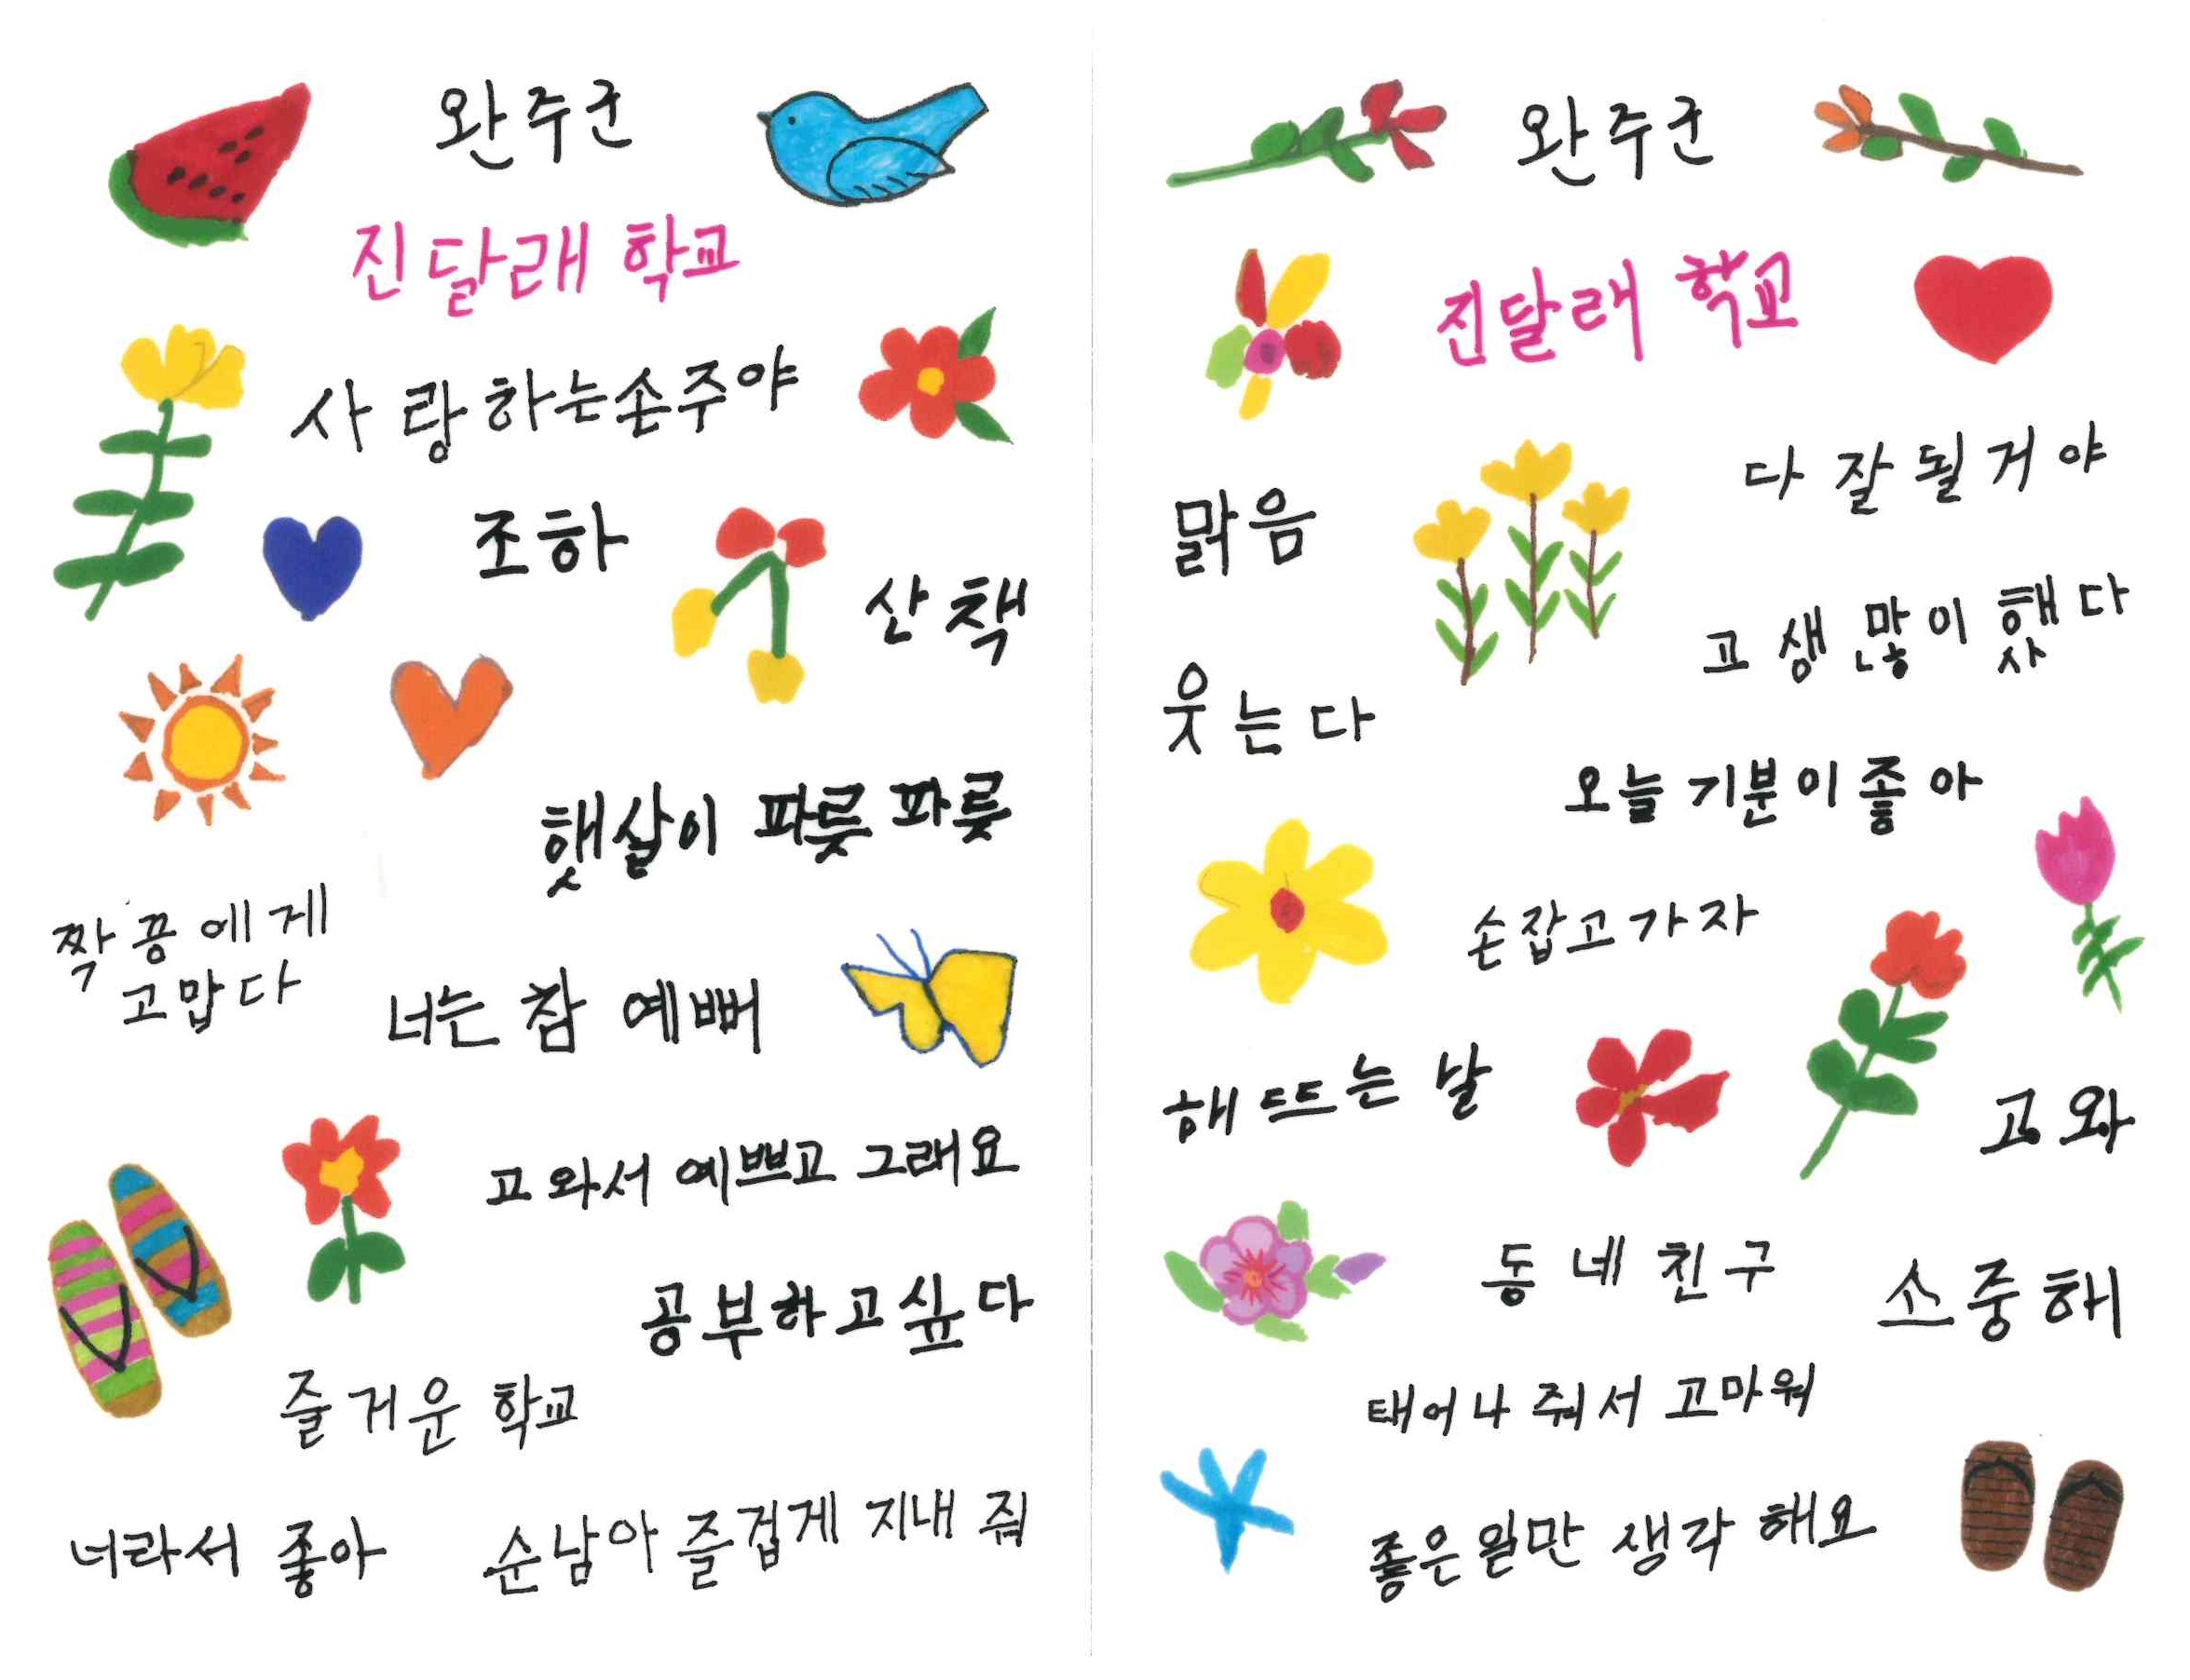 완주군
진달래 학교
사랑하는손주야
조하
산책
햇살이 파릇파릇
짝꿍에게
고맙다
너는 참 예뻐
고와서 예쁘고 그래요
공부하고싶다
즐거운 학교
너라서 좋아
순남아 즐겁게 지내 줘
완주군
진달래 학교
다 잘될거야
맑음
고생 많이 했다
웃는다
오늘 기분이 좋아
손잡고가자
해뜨는 날
고와
동네 친구
소중해
태어나 줘서 고마워
좋은일만 생각 해요